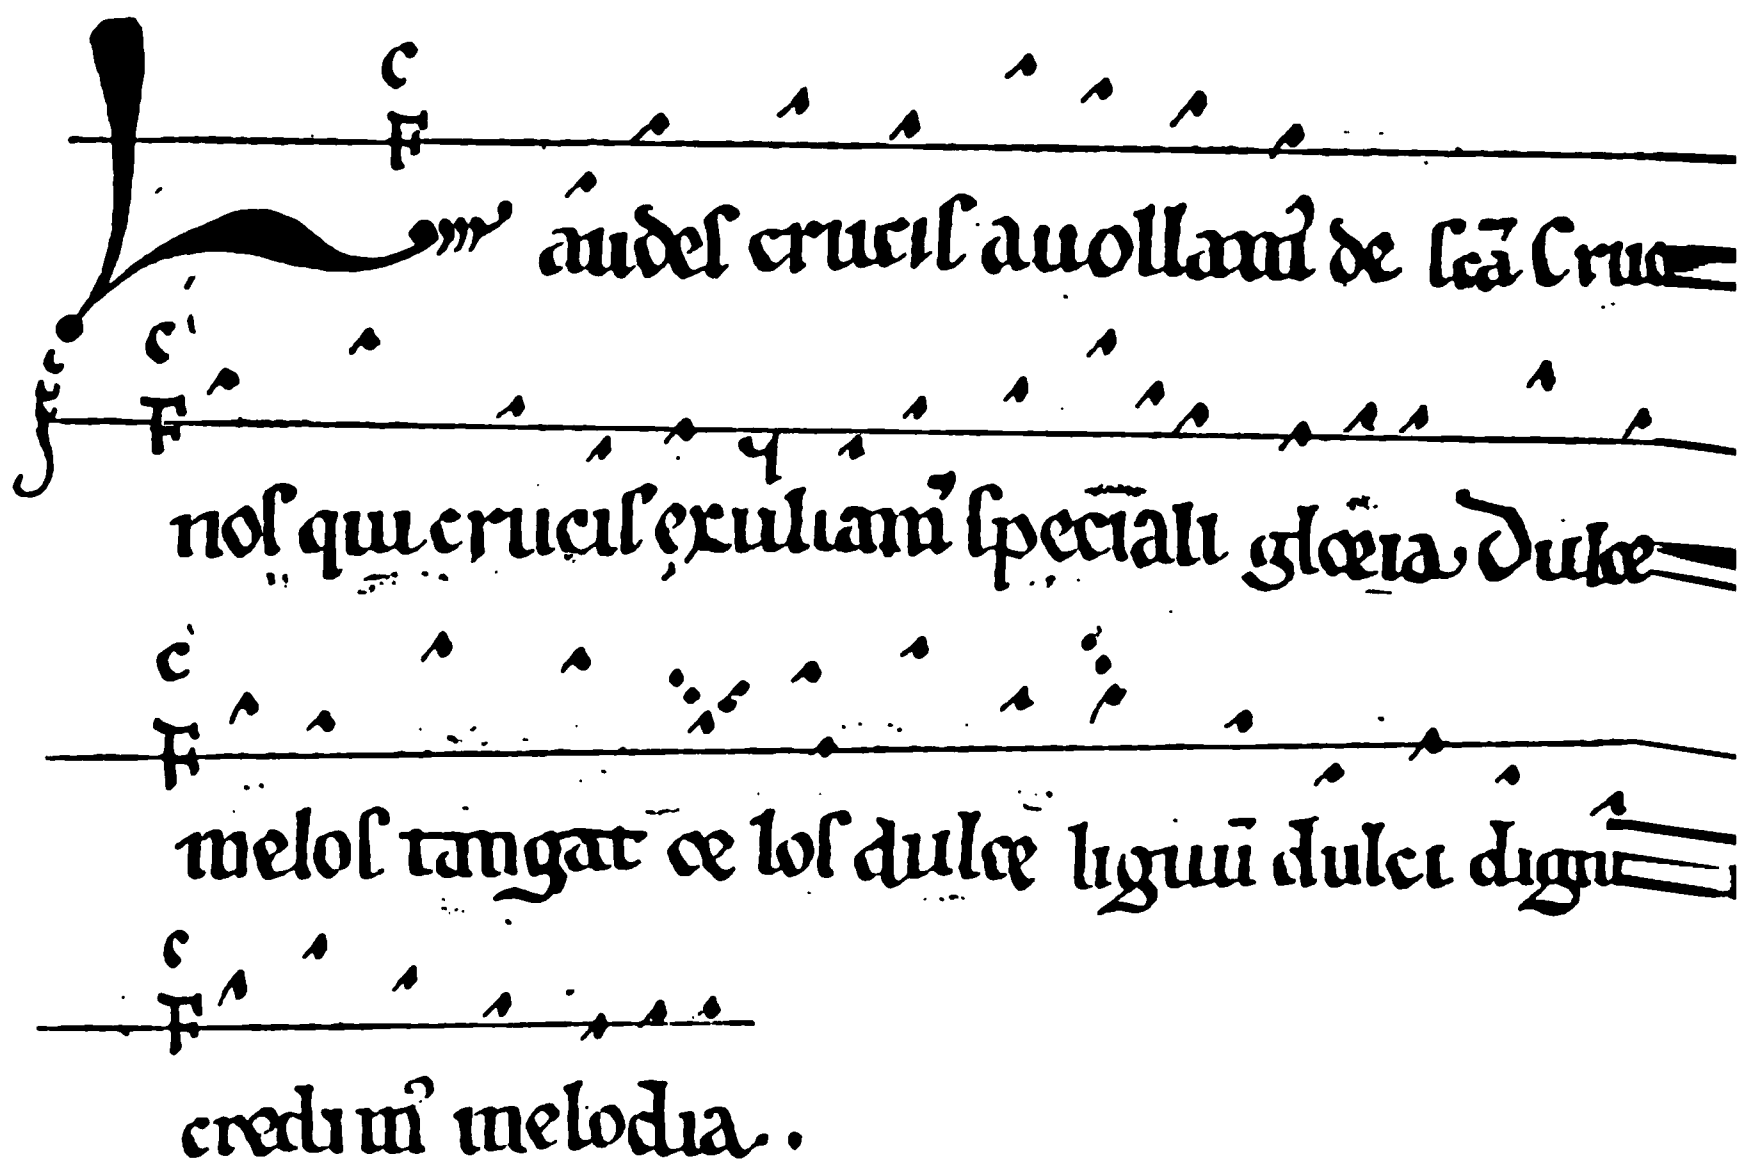 C
F
Laudeſ cruciſ attollam᾽ de ſcā Cruc
C
F
noſ qui cruciſ exultam᾽ ſpeciali gloria Dulce
C
F
meloſ tangat celoſ dulce lignū dulci dignū
C
F
credim᾽ melodia..